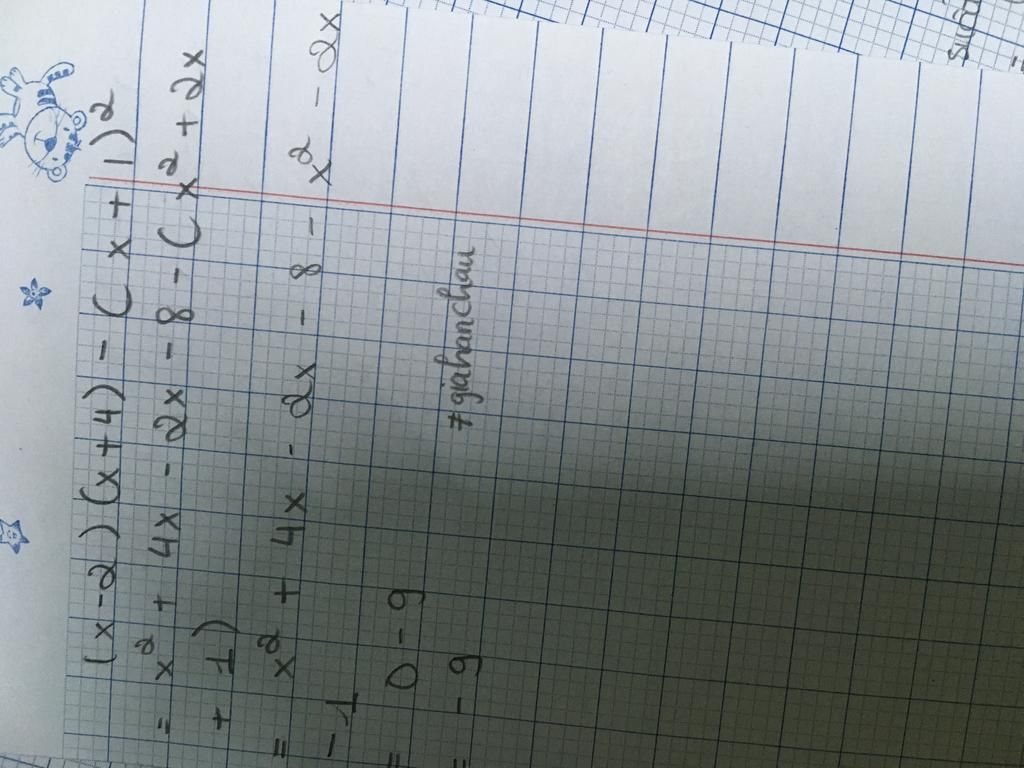 (x-2)(x+4) - (x+1)²
= x² + 4x - 2x - 8 - (x² + 2x
+ 1)
= x² + 4x - 2x - 8 - x² - 2x
- 1
= 0 - 9
= - 9
≠giahanchau